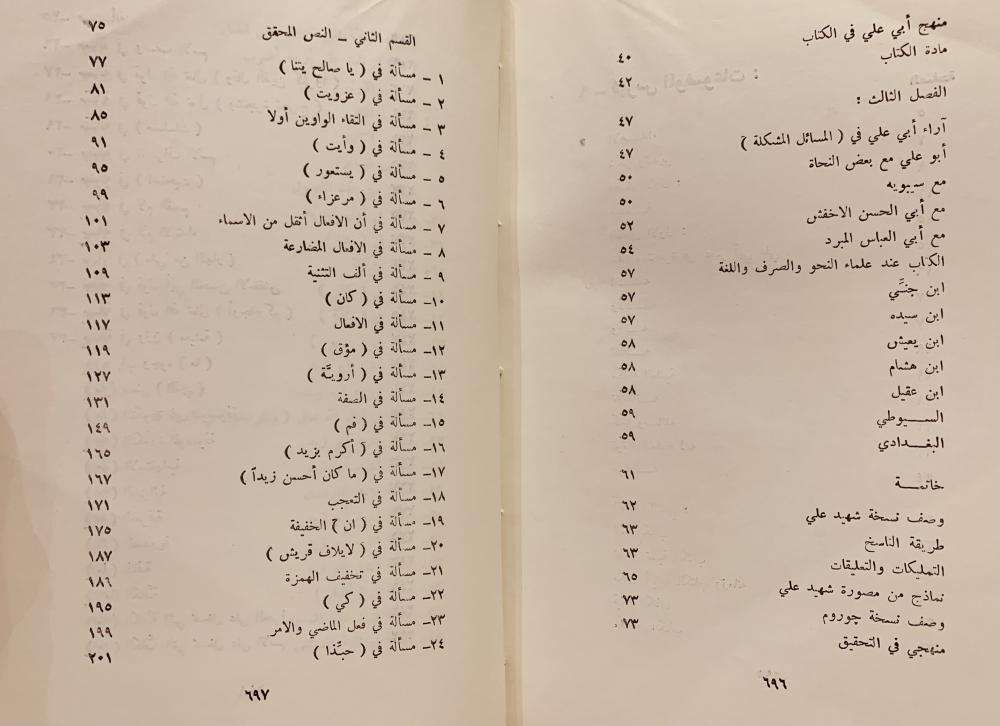 منهج أبي علي في الكتاب ٤٠
مادة الكتاب ٤٢
الفصل الثالث : ٤٧
آراء أبي علي في ( المسائل المشكلة ) ٤٧
أبو علي مع بعض النحاة ٥٠
مع سيبويه ٥٠
مع أبي الحسن الاخفش ٥٢
مع أبي العباس المبرد ٥٤
الكتاب عند علماء النحو والصرف واللغة ٥٧
ابن جنّي ٥٧
ابن سيده ٥٧
ابن يعيش ٥٨
ابن هشام ٥٨
ابن عقيل ٥٨
السيوطي ٥٩
البغدادي ٥٩
خاتمة ٦١
وصف نسخة شهيد علي ٦٢
طريقة الناسخ ٦٣
التمليكات والتعليقات ٦٣
نماذج من مصورة شهيد علي ٦٥
وصف نسخة چوروم ٧٣
منهجي في التحقيق ٧٣
٦٩٦
القسم الثاني – النص المحقق ٧٥
١ – مسألة في ( يا صالح يتنا ) ٧٧
٢ – مسألة في ( عزويت ) ٨١
٣ – مسألة في التقاء الواوين أولا ٨٥
٤ – مسألة في ( وأيت ) ٩١
٥ – مسألة في ( يستعور ) ٩٥
٦ – مسألة في ( مرعزاء ) ٩٩
٧ – مسألة في أن الافعال أثقل من الاسماء ١٠١
٨ – مسألة في الافعال المضارعة ١٠٣
٩ – مسألة في ألف التثنية ١٠٩
١٠– مسألة في ( كان ) ١١٣
١١– مسألة في الافعال ١١٧
١٢– مسألة في ( مؤق ) ١١٩
١٣– مسألة في ( أرويّة ) ١٢٧
١٤– مسألة في الصفة ١٣١
١٥– مسألة في ( فم ) ١٤٩
١٦– مسألة في ( أكرم بزيد ) ١٦٥
١٧– مسألة في ( ما كان أحسن زيداً ) ١٦٧
١٨– مسألة في التعجب ١٧١
١٩– مسألة في ( ان ) الخفيفة ١٧٥
٢٠– مسألة في ( لايلاف قريش ) ١٨٧
٢١– مسألة في تخفيف الهمزة ١٨٦
٢٢– مسألة في ( كي ) ١٩٥
٢٣– مسألة في فعل الماضي والأمر ١٩٩
٢٤– مسألة في ( حبّذا ) ٢٠١
٦٩٧